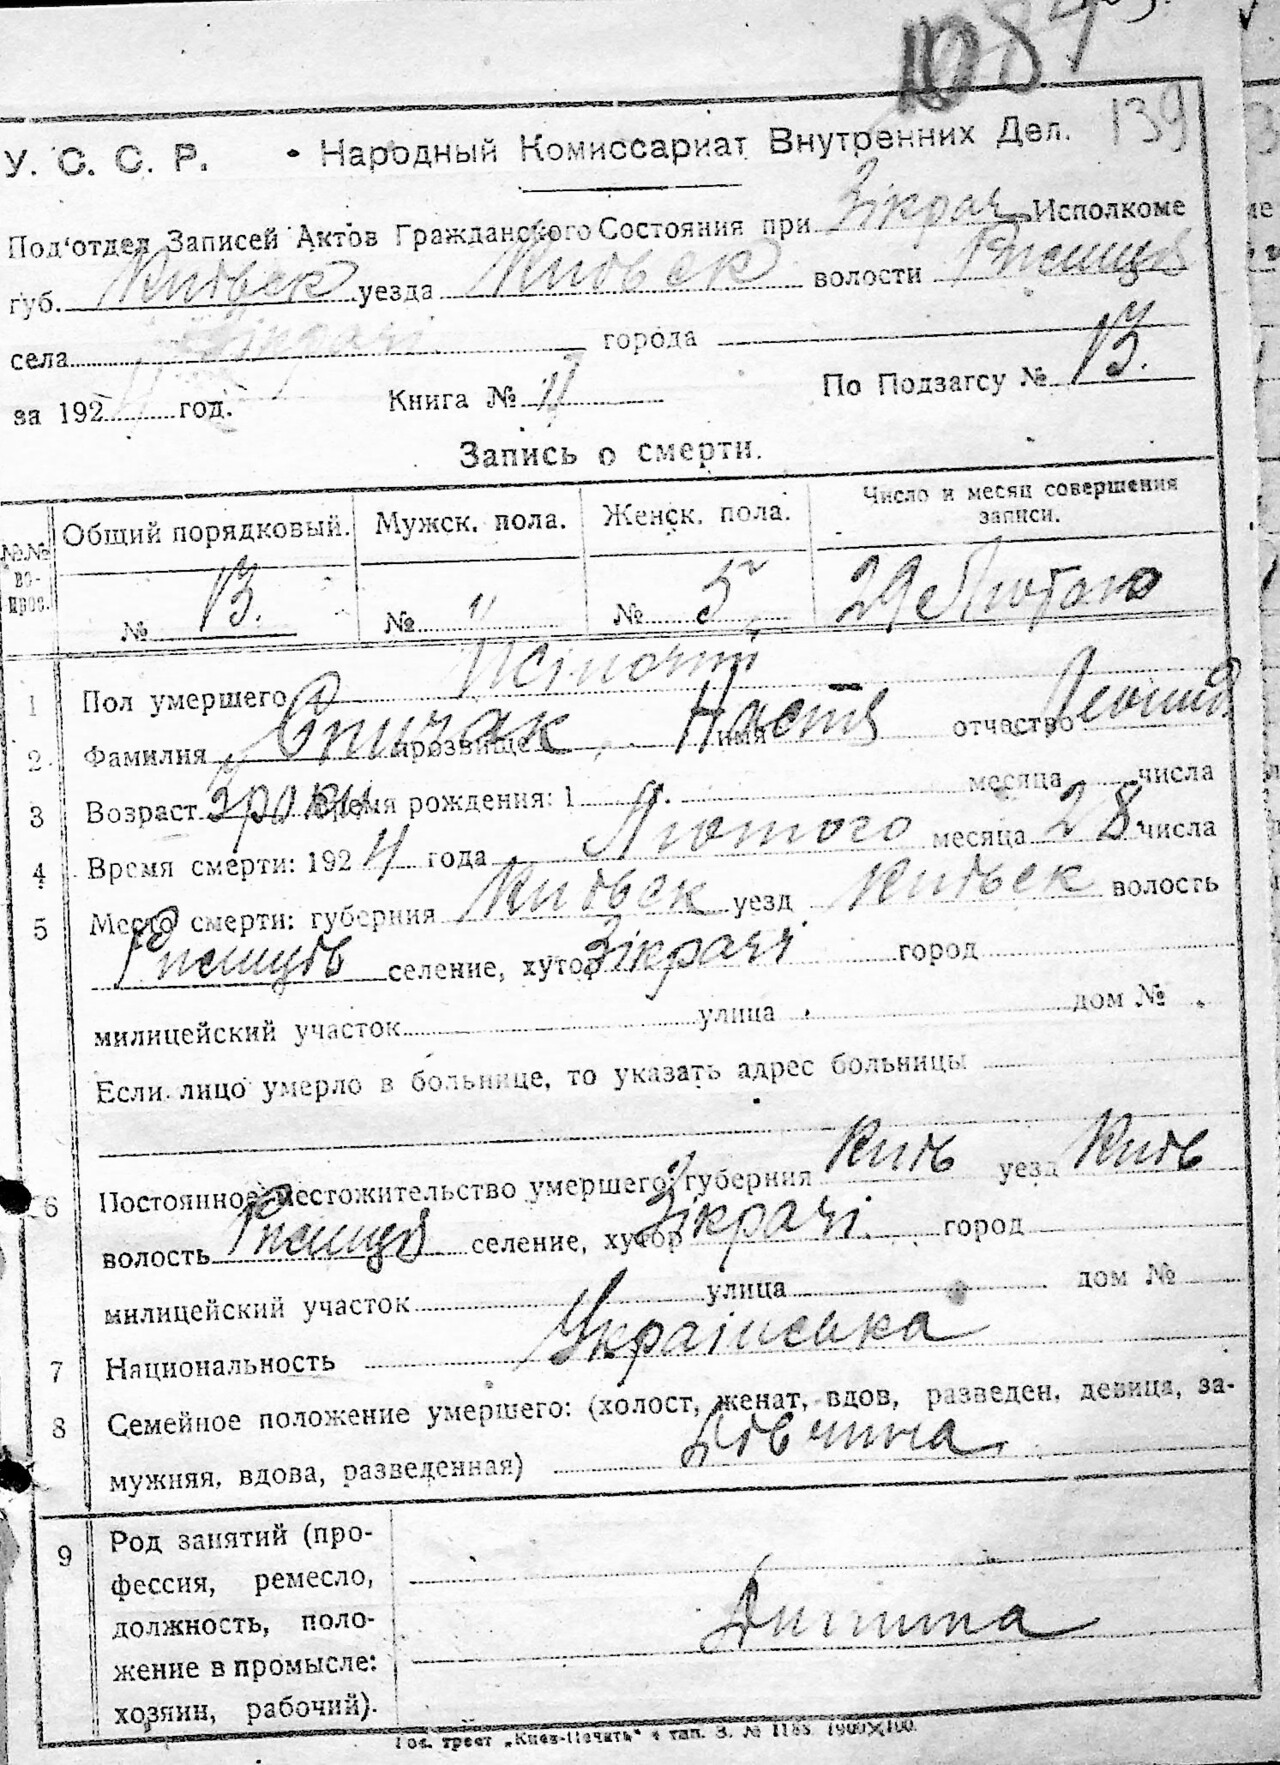 1084
139
У. С. С. Р. • Народный Комиссариат Внутренних Дел.
Под‘отдел Записей Актов Гражданского Состояния при Зікрач Исполкоме
губ. Київськ уезда Київськ волости Ржищів
села Зікрачі города
за 1924 год. Книга № 11 По Подзагсу № 13.
Запись о смерти.
№№ вопрос. Общий порядковый. Мужск. пола. Женск. пола. Число и месяц совершения записи.
№ 13. № " № 5 29 Лютого
1 Пол умершего Жіночий
2 Фамилия Спичак прозвище имя Настя отчество
3 Возраст 3 роки Время рождения: 1 месяца числа
4 Время смерти: 1924 года Лютого месяца 28 числа
5 Место смерти: губерния Київськ уезд Київськ волость
Ржищів селение, хутор Зікрачі город
милицейский участок улица дом №
Если лицо умерло в больнице, то указать адрес больницы
6 Постоянное местожительство умершего: губерния Київ уезд Київ
волость Ржищів селение, хутор Зікрачі город
милицейский участок улица дом №
7 Национальность Українська
8 Семейное положение умершего: (холост, женат, вдов, разведен, девица, за-
мужняя, вдова, разведенная) Дівчина
9 Род занятий (про-
фессия, ремесло,
должность, поло-
жение в промысле:
хозяин, рабочий).
Дитина
Гос. трест „Киев-Печать“ 4 тип. З. № 1188. 1900×100.